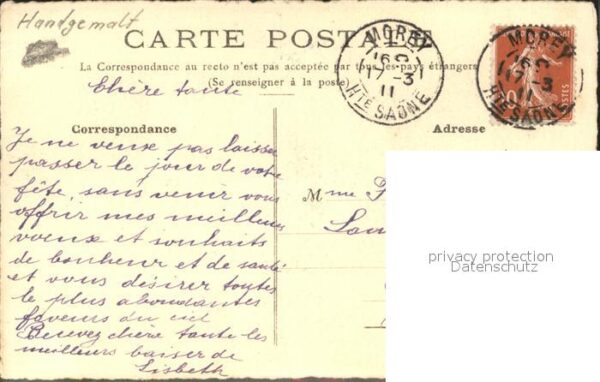 Handgemalt
CARTE POSTALE
La Correspondance au recto n'est pas acceptée par tous les pays étrangers
(Se renseigner à la poste)
Chère tante
Correspondance
Adresse
Je ne veux pas laisser
passer le jour de votre
fête, sans venir vous
offrir mes meilleurs
voeux et souhaits
de bonheur et de santé
et vous désirer toutes
le plus abondantes
faveurs du ciel
Recevez chère tante les
meilleurs baiser de
Lisbeth
Mme
MOREY
17-3
11
HTE SAÔNE
MOREY
17-3
11
HTE SAÔNE
POSTES
privacy protection
Datenschutz